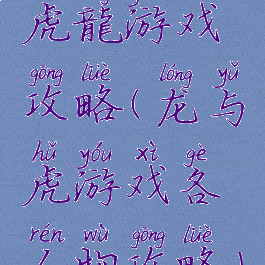 虎龍游戏
gōng lüè lóng yǔ
攻略(龙与
hǔ yóu xì gè
虎游戏各
rén wù gōng lüè
人物攻略)